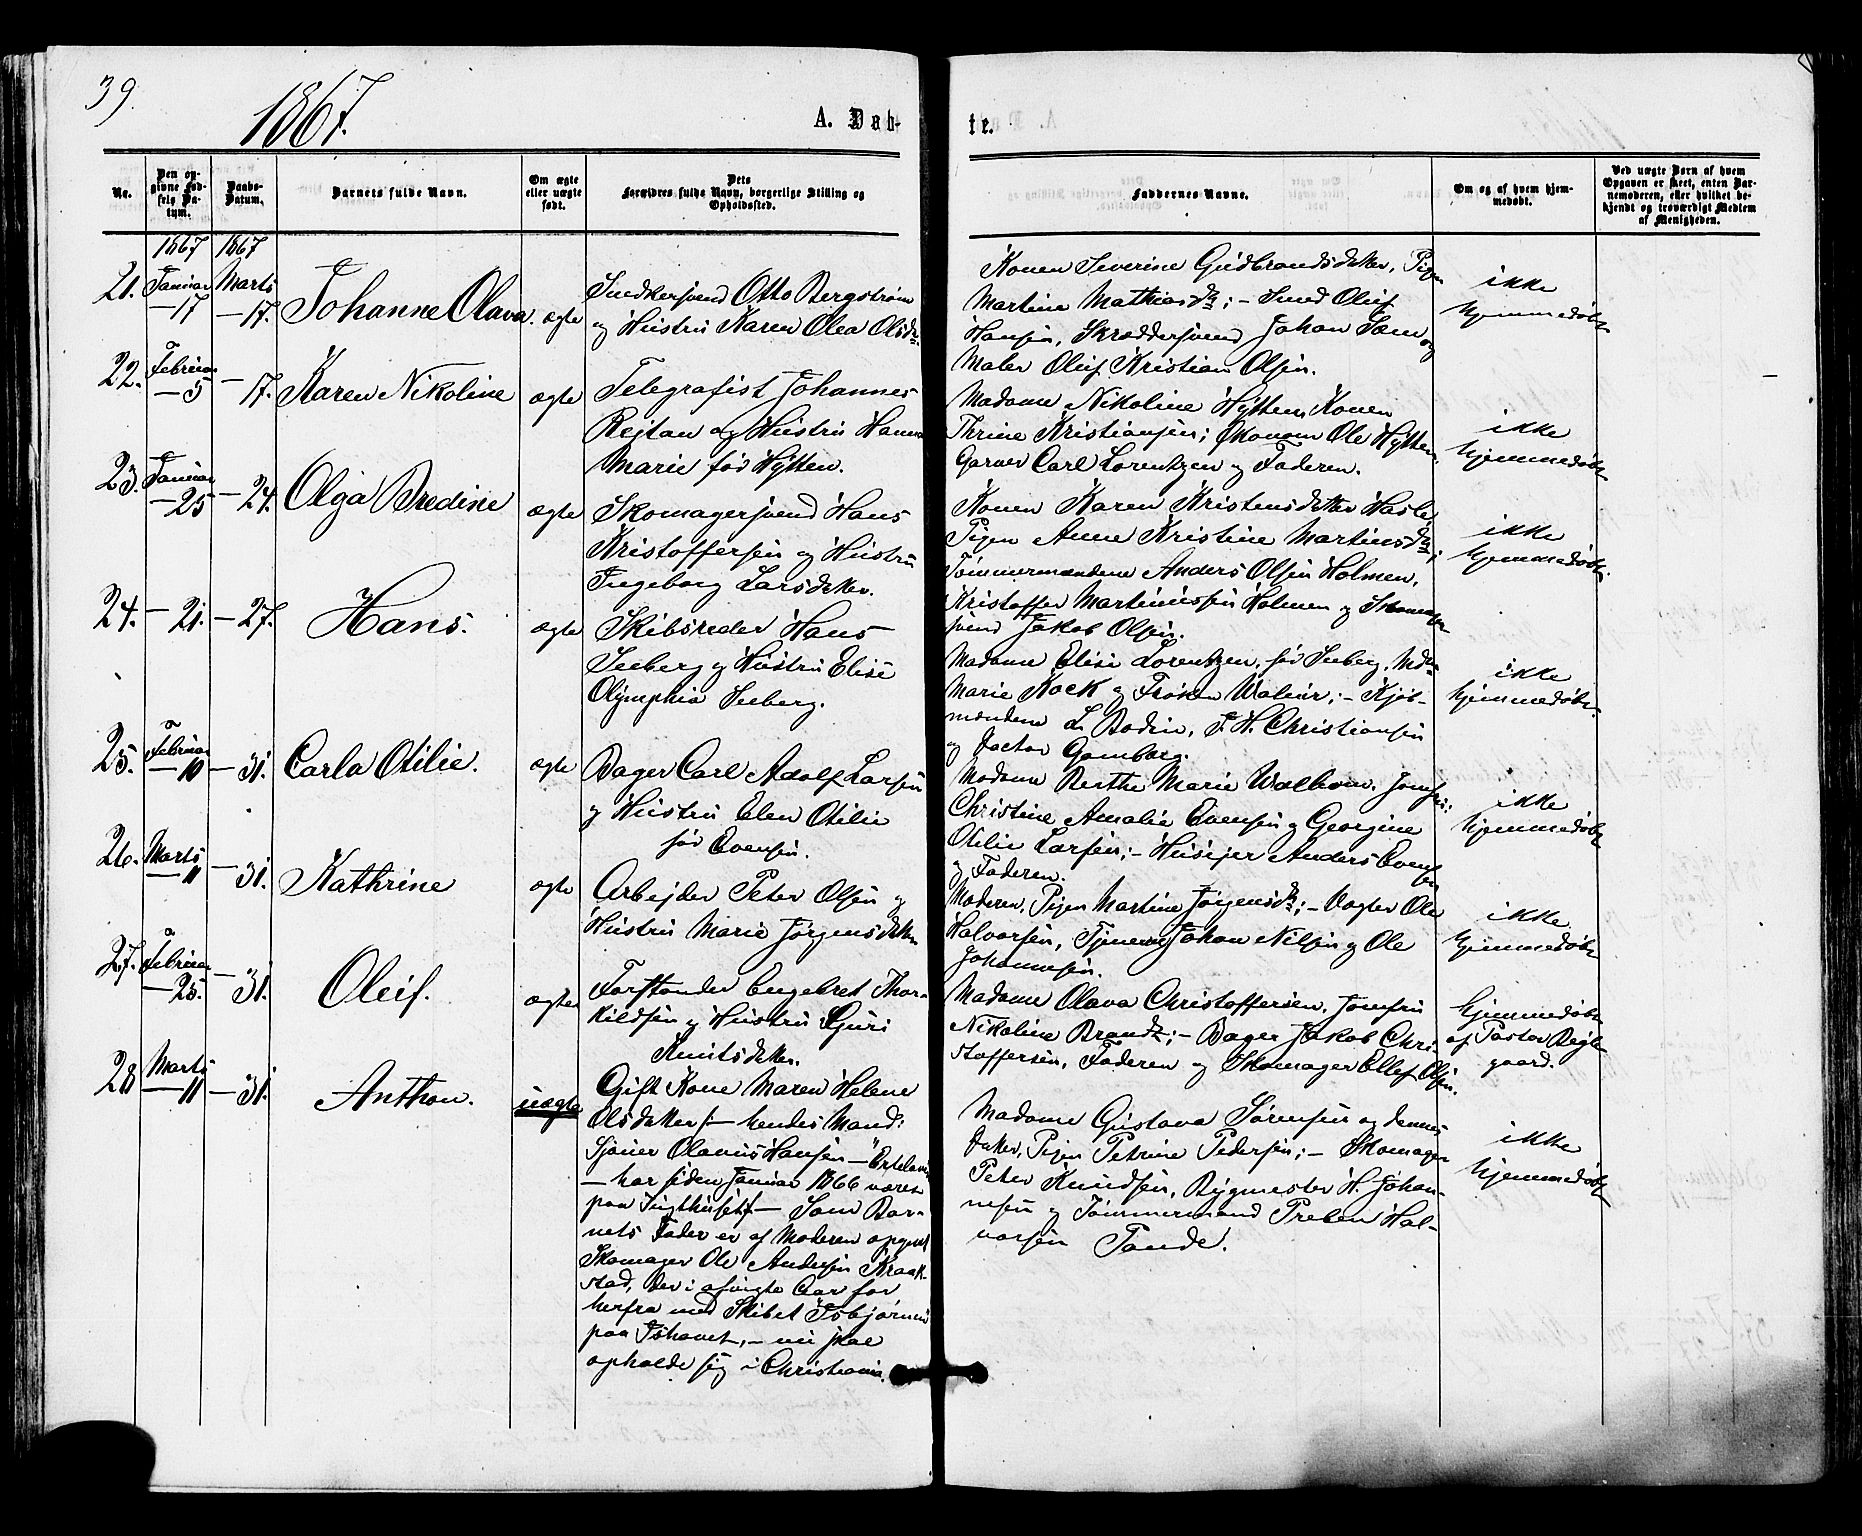 39.
1867.
A. Døb-
te.
Nr.
Den op-
givne Fød-
sels Da-
tum.
Daabs-
Datum.
Barnets fulde Navn.
Om ægte
eller uægte
født.
Dets
Forældres fulde Navn, borgerlige Stilling og
Opholdssted.
Faddernes Navne.
Om og af hvem hjem-
medøbt.
Ved uægte Børn af hvem
Opgaven er skeet, enten Bar-
nemoderen, eller hvilket be-
kjendt og troværdigt Medlem
af Menigheden.
1867 1867
21. Januar
—17 Marts
—17. Johanne Olava. ægte
Snedkersvend Otto Bergstrøm
og Hustru Karen Olea Olsdr.
Konen Severine Gudbrandsdatter, Pigen
Martine Mathiasdr; — Smed Oluf
Hansen, Skræddersvend Johan Sæm og
Maler Oluf Kristian Olsen.
ikke
hjemmedøbt
22. Februar
—5 —17. Karen Nikoline ægte
Telegrafist Johannes
Rejtan og Hustru Hanna
Marie født Hytten.
Madame Nikoline Hytten, Konen
Thrine Kristiansen; Økonom Ole Hytten,
Garver Carl Lorentzen og Faderen.
ikke
hjemmedøbt
23. Januar
—25 —24. Olga Bredine ægte
Skomagersvend Hans
Kristoffersen og Hustru
Ingeborg Larsdatter.
Konen Karen Kristensdatter Hasle,
Pigen Anne Kristine Martinsdr;
Tømmermændene Anders Olsen Holmen,
Kristoffer Martiniusen Holmen og Skomager
svend Jakob Olsen.
ikke
hjemmedøbt.
24. —21. —27. Hans. ægte
Skibsreder Hans
Seeberg og Hustru Elise
Olymphia Seeberg.
Madame Elise Lorentzen, født Seeberg, Mdm
Marie Kock og Frøken Walnir; — Kjøb-
mændene L. Bodin, F. H. Christiansen
og Doctor Gamborg.
ikke
hjemmedøbt.
25. Februar
—10 —31. Carla Otilie. ægte
Bager Carl Adolf Larsen
og Hustru Elen Otilie
født Evensen.
Madame Berthe Marie Walbom, Jomfru:
Christine Amalie Evensen og Georgine
Otilie Larsen; — Huusejer Anders Evensen
og Faderen.
ikke
hjemmedøbt
26. Marts
—11 —31. Kathrine ægte
Arbejder Peter Olsen og
Hustru Marie Jørgensdatter
Moderen, Pigen Martine Jørgensdr; — Vogter Ole
Halvorsen, Tjener Johan Nilsen og Ole
Johannesen.
ikke
hjemmedøbt
27. Februar
—25. —31. Oluf. ægte
Forstander Engebret Thor-
kildsen og Hustru Guri
Knutsdatter.
Madame Olava Christoffersen, Jomfru
Nikoline Brandt; — Bager Jakob Chri-
stoffersen, Faderen og Skomager Ellef Olsen.
hjemmedøbt
af Pastor Bugge
gaard.
28 Marts
—11 —31. Anthon. uægte
Gift Kone Maren Helene
Olsdatter /: — hendes Mand:
Sjøner Olavus Hansen —
— har siden Januar 1866 været
paa Tugthuset/ — Som Bar-
nets Fader er af Moderen opgivet
Skomager Ole Andersen Kraak-
stad, der i afvigte Aar for
herfra med Skibet Isbjørnen
paa Ishavet, — nu skal
opholde sig i Christiania.
Madame Gustava Sørensen og dennes
Datter, Pigen Petrine Pedersen; — Skomager
Peter Knudsen, Bygmester H. Johan-
nesen og Tømmermand Preben Hal-
vorsen Tande.
ikke
hjemmedøbt